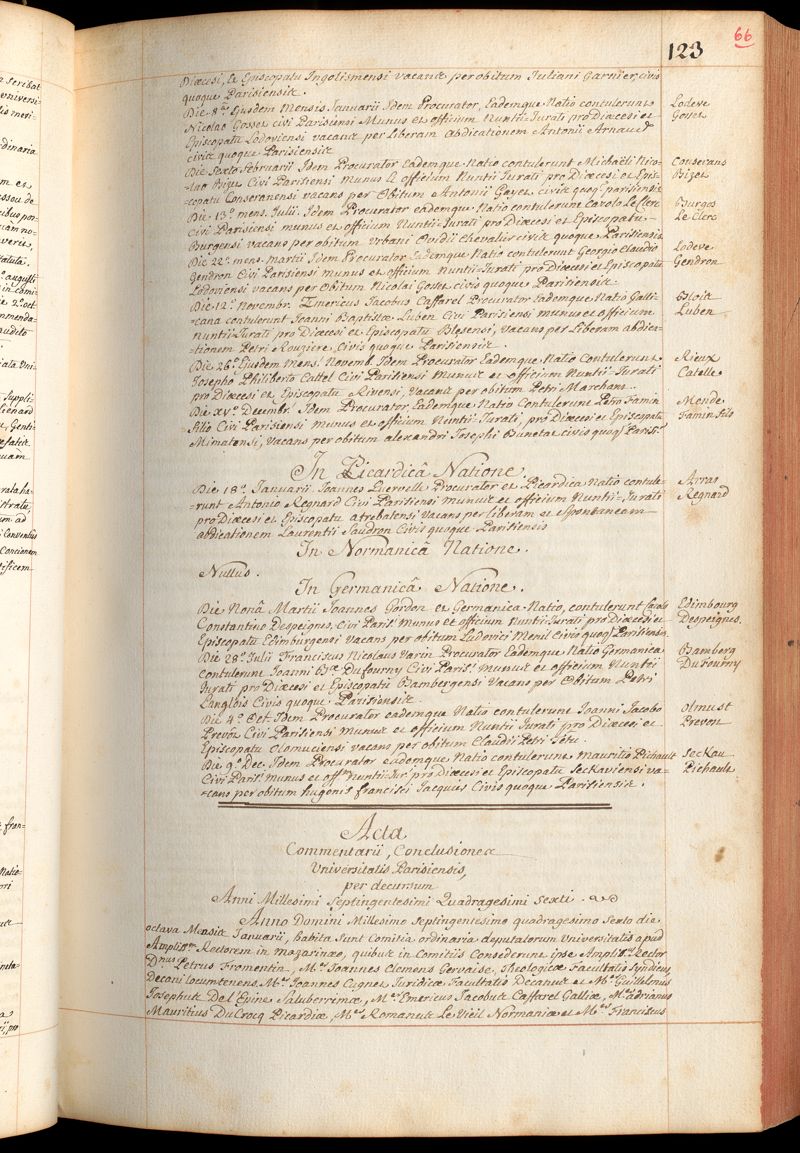 123
66
Diœcesi, et Episcopatu Ingolismensi vacans per obitum Juliani Garnier, civis
quoque Parisiensis.
Die 8.ª Ejusdem Mensis Januarii Idem Procurator, Eademque Natio contulerunt
Lodeve
Nicolao Gosset civi Parisiensi Munus et officium Nuntii-Jurati pro Diœcesi et
Episcopatu Lodoviensi vacans per Liberam abdicationem Antonii Arnaud
civis quoque Parisiensis
Die Sexto Februarii Idem Procurator Eademque Natio contulerunt Michaëli Nic-
Conserans
=lao Bizet Civi Parisiensi munus et officium Nuntii Jurati pro Diœcesi et Epis-
Bizet
copatu Conseranensi vacans per Obitum Antonii Gayet civis quoq. parisiensis
Die 13.º mens. Julii. Idem Procurator eademque Natio contulerunt Carolo Le Clerc
Burgos
Civi Parisiensi munus et officium Nuntii-Jurati pro Diœcesi et Episcopatu
Le Clerc
Burgensi vacans per obitum Urbani Ovidii Chevalier civis quoque Parisiensis
Die 22.ª mens. martii Idem Procurator Eademque Natio contulerunt Georgio Claudio
Lodeve
Gendron Civi Parisiensi munus et officium nuntii-Jurati pro Diœcesi et Episcopatu
Gendron
Lodoviensi vacans per Obitum Nicolai Gosset civis quoque Parisiensis
Die 12.ª Novembr. Emericus Jacobus Caffarel Procurator Eademque Natio Galli-
Bloix
=cana contulerunt Joanni Baptistæ Luben Civi Parisiensi munus et officium
Luben
nuntii-Jurati pro Diœcesi et Episcopatu Blesensi, vacans per Liberam abdica-
=tionem Petri Rouziere Civis quoque Parisiensis.
Die 26.ª Ejusdem Mens. Novemb. Idem Procurator Eademque Natio Contulerunt
Rieux
Josepho Philiberto Cattel Civi Parisiensi Munus et officium Nuntii-Jurati
Catelle
pro Diœcesi et Episcopatu Rivensi, Vacans per obitum Petri Marchant.
Die XV.º Decembr. Idem Procurator, Eademque Natio Contulerunt Petro Famin
Mende
filio Civi Parisiensi munus et officium Nuntii-Jurati, pro Diœcesi et Episcopatu
Famin fils
Mimatensi, Vacans per obitum alexandri Josephi Bunetat civis quoq. Paris.is
In Picardicâ Natione.
Die 18.ª Januarii Joannes Quervelle Procurator et Picardica Natio contule-
Arras
=runt Antonio Regnard Civi Parisiensi munus et officium Nuntii-Jurati
Regnard
pro Diœcesi et Episcopatu atrebatensi Vacans per Liberam et Spontaneam
abdicationem Laurentii Saudron Civis quoque Parisiensis
In Normanicâ Natione.
Nullus.
In Germanicâ Natione.
Die Nonâ Martii Joannes Gordon et Germanica Natio, contulerunt Carolo
Edimbourg
Constantino Despeignes, Civi Paris.i Munus et officium Nuntii-Jurati pro Diœcesi et
Despeignes.
Episcopatu Edimburgensi Vacans per obitum Ludovici Menil Civis quoq. Parisiensis
Die 28.ª Julii Franciscus Nicolaus Varin Procurator Eademque Natio Germanica
Bamberg
Contulerunt Joanni B.tæ Dufourny Civi Paris.i munus et officium Nuntii
Du fourny
Jurati pro Diœcesi et Episcopatu Bambergensi Vacans per Obitum Petri
Langlois Civis quoque Parisiensis
Die 4.ª Oct. Idem Procurator eademque Natio contulerunt Joanni Jacobo
Olmust
Prevôn Civi Parisiensi munus et officium Nuntii Jurati pro Diœcesi et
Prevon
Episcopatu Olomuciensi vacans per obitum Claudii Petri Tetu.
Die 9.ª Dec. Idem Procurator eademque Natio contulerunt mauritio Pichault
Seckau
Civi Paris.i munus et off.m nuntii-Jur. pro Diœcesi et Episcopatu Seckaviensi va-
Pichault
=cans per obitum hugonis francisci Jacques Civis quoque Parisiensis.
Acta
Commentarii, Conclusiones
Universitatis Parisiensis,
per decursum
Anni Millesimi Septingentesimi Quadragesimi Sexti.
Anno Domini Millesimo Septingentesimo quadragesimo Sexto die
octava Mensis Januarii, habita sunt Comitia ordinaria deputatorum Universitatis apud
Ampliss.um Rectorem in mazarinæo, quibus in Comitiis Consederunt ipse Ampliss.us Rector
D.nus Petrus Fromentin, M.er Joannes Clemens Gervaise, theologicæ facultatis Syndicus,
Decani locumtenens, M.er Joannes Cugnet Juridicæ Facultatis Decanus et M.er Guillelmus
Josephus De l'Epine Saluberrimæ, M.er Emericus Jacobus Caffarel Galliæ, M.er adrianus
Mauritius DuCrocq Picardiæ, M.er Romanus Le Vieil Normaniæ et M.er Franciscus